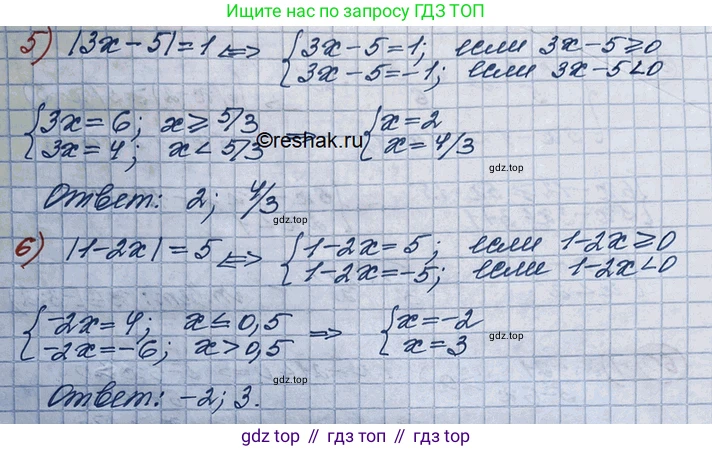 Ищите нас по запросу ГДЗ ТОП
5) |3x-5|=1 <=> { 3x-5=1; если 3x-5≥0
3x-5=-1; если 3x-5<0
{ 3x=6; x≥5/3 => { x=2
3x=4; x<5/3 x=4/3
©reshak.ru
gdz.top
Ответ: 2; 4/3
gdz.top
6) |1-2x|=5 <=> { 1-2x=5; если 1-2x≥0
1-2x=-5; если 1-2x<0
gdz.top
{ -2x=4; x≤0,5 => { x=-2
-2x=-6; x>0,5 x=3
gdz.top
gdz.top
Ответ: -2; 3.
gdz top // гдз топ // gdz top